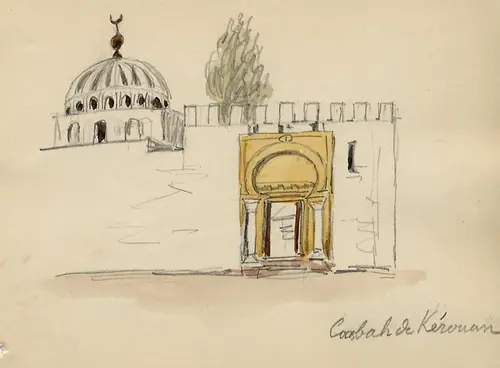 Casbah de Kérouan